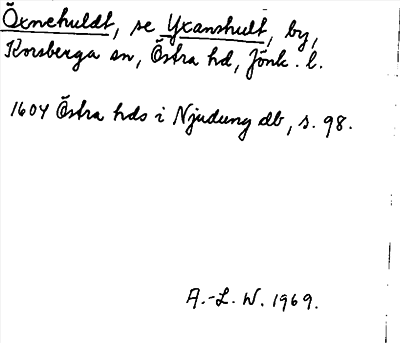 Öxnehuldt, se Yxanshult, by,
Korsberga sn, Östra hd, Jönk. l.
1604 Östra hds i Njudung db, s. 98.
A.-L. W. 1969.